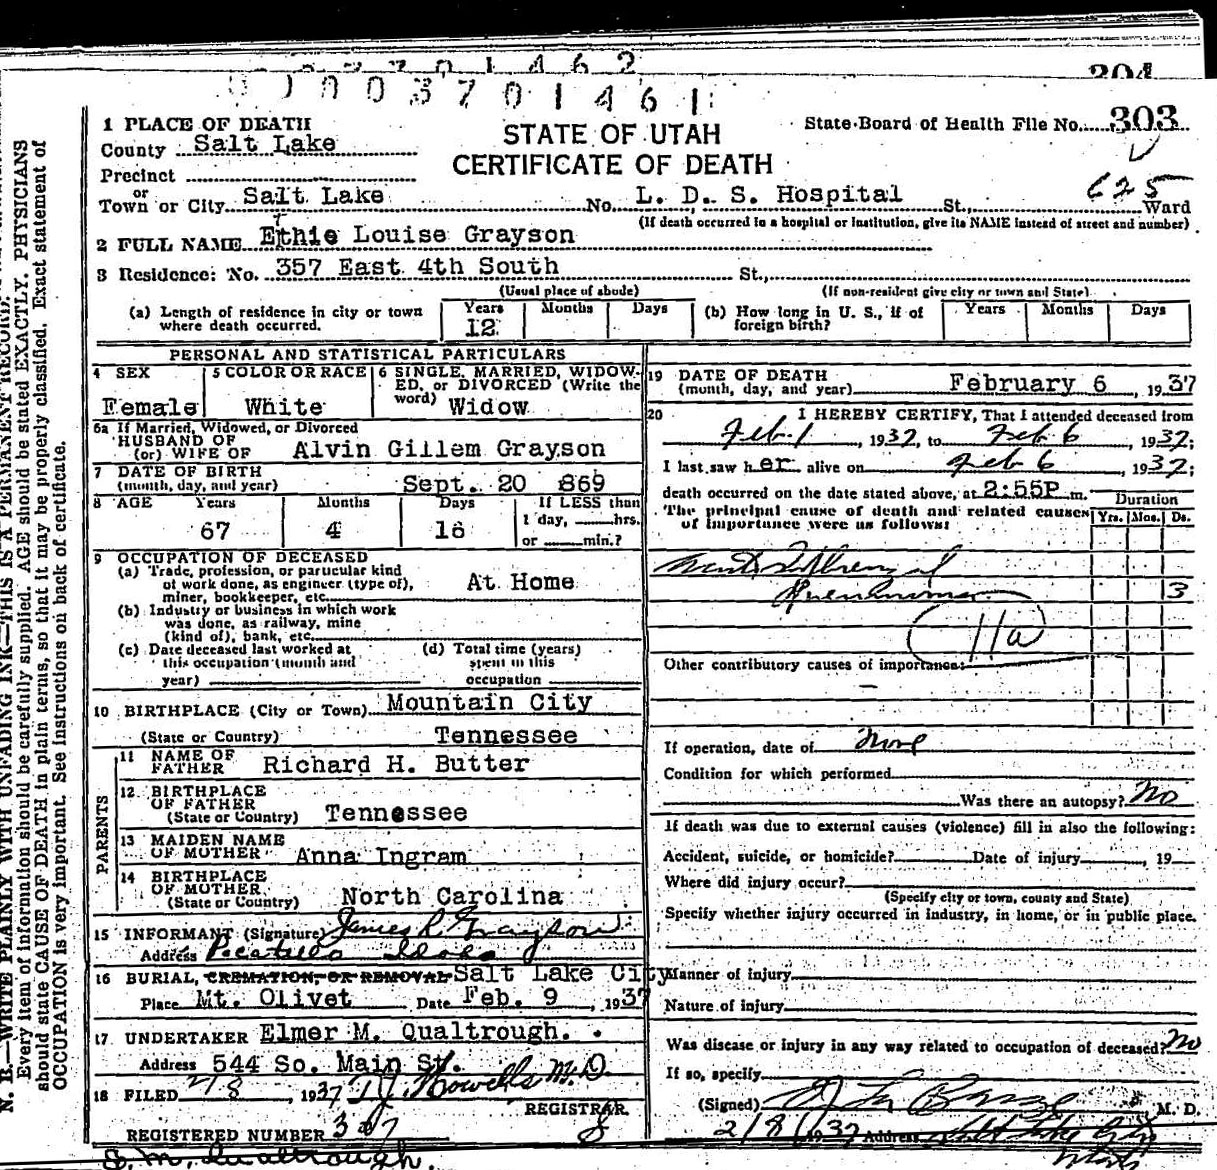 3701462
304
003701461
1 PLACE OF DEATH
STATE OF UTAH
CERTIFICATE OF DEATH
State Board of Health File No. 303
County Salt Lake
Precinct
or
Town or City Salt Lake No. L. D. S. Hospital St., 625 Ward
(If death occurred in a hospital or institution, give its NAME instead of street and number)
2 FULL NAME Ethie Louise Grayson
3 Residence: No. 357 East 4th South St.,
(Usual place of abode) (If non-resident give city or town and State)
(a) Length of residence in city or town where death occurred. Years 12 Months Days (b) How long in U. S., if of foreign birth? Years Months Days
PERSONAL AND STATISTICAL PARTICULARS
4 SEX Female
5 COLOR OR RACE White
6 SINGLE, MARRIED, WIDOWED, or DIVORCED (Write the word) Widow
6a If Married, Widowed, or Divorced
HUSBAND OF
(or) WIFE OF Alvin Gillem Grayson
7 DATE OF BIRTH
(month, day, and year) Sept. 20 869
8 AGE Years 67 Months 4 Days 16 If LESS than 1 day, hrs. or min.?
9 OCCUPATION OF DECEASED
(a) Trade, profession, or particular kind
of work done, as engineer (type of),
miner, bookkeeper, etc. At Home
(b) Industry or business in which work
was done, as railway, mine
(kind of), bank, etc.
(c) Date deceased last worked at this occupation (month and year)
(d) Total time (years) spent in this occupation
10 BIRTHPLACE (City or Town) Mountain City
(State or Country) Tennessee
PARENTS
11 NAME OF FATHER Richard H. Butter
12 BIRTHPLACE OF FATHER
(State or Country) Tennessee
13 MAIDEN NAME OF MOTHER Anna Ingram
14 BIRTHPLACE OF MOTHER
(State or Country) North Carolina
15 INFORMANT (Signature) James R Grayson
Address Pocatello Idaho
16 BURIAL, CREMATION, OR REMOVAL Salt Lake City
Place Mt. Olivet Date Feb. 9, 1937
17 UNDERTAKER Elmer M. Qualtrough.
Address 544 So. Main St.
18 FILED 2/8, 1937 T. J. Howells M.D.
REGISTRAR
REGISTERED NUMBER 307
E. M. Qualtrough.
19 DATE OF DEATH
(month, day, and year) February 6, 1937
20 I HEREBY CERTIFY, That I attended deceased from
Feb. 1, 1937, to Feb 6, 1937;
I last saw her alive on Feb 6, 1937;
death occurred on the date stated above, at 2:55P m.
Duration
The principal cause of death and related causes
of importance were as follows:
Yrs. Mos. Ds.
3
11a
Other contributory causes of importance:
If operation, date of none
Condition for which performed
Was there an autopsy? No
If death was due to external causes (violence) fill in also the following:
Accident, suicide, or homicide? Date of injury, 19
Where did injury occur?
(Specify city or town, county and State)
Specify whether injury occurred in industry, in home, or in public place.
Manner of injury
Nature of injury
Was disease or injury in any way related to occupation of deceased? No
If so, specify
(Signed) M. D.
2/8/1937 Address Salt Lake City
Utah
N. B.—WRITE PLAINLY WITH UNFADING INK—THIS IS A PERMANENT RECORD.
Every item of information should be carefully supplied. AGE should be stated EXACTLY. PHYSICIANS
should state CAUSE OF DEATH in plain terms, so that it may be properly classified. Exact statement of
OCCUPATION is very important. See instructions on back of certificate.